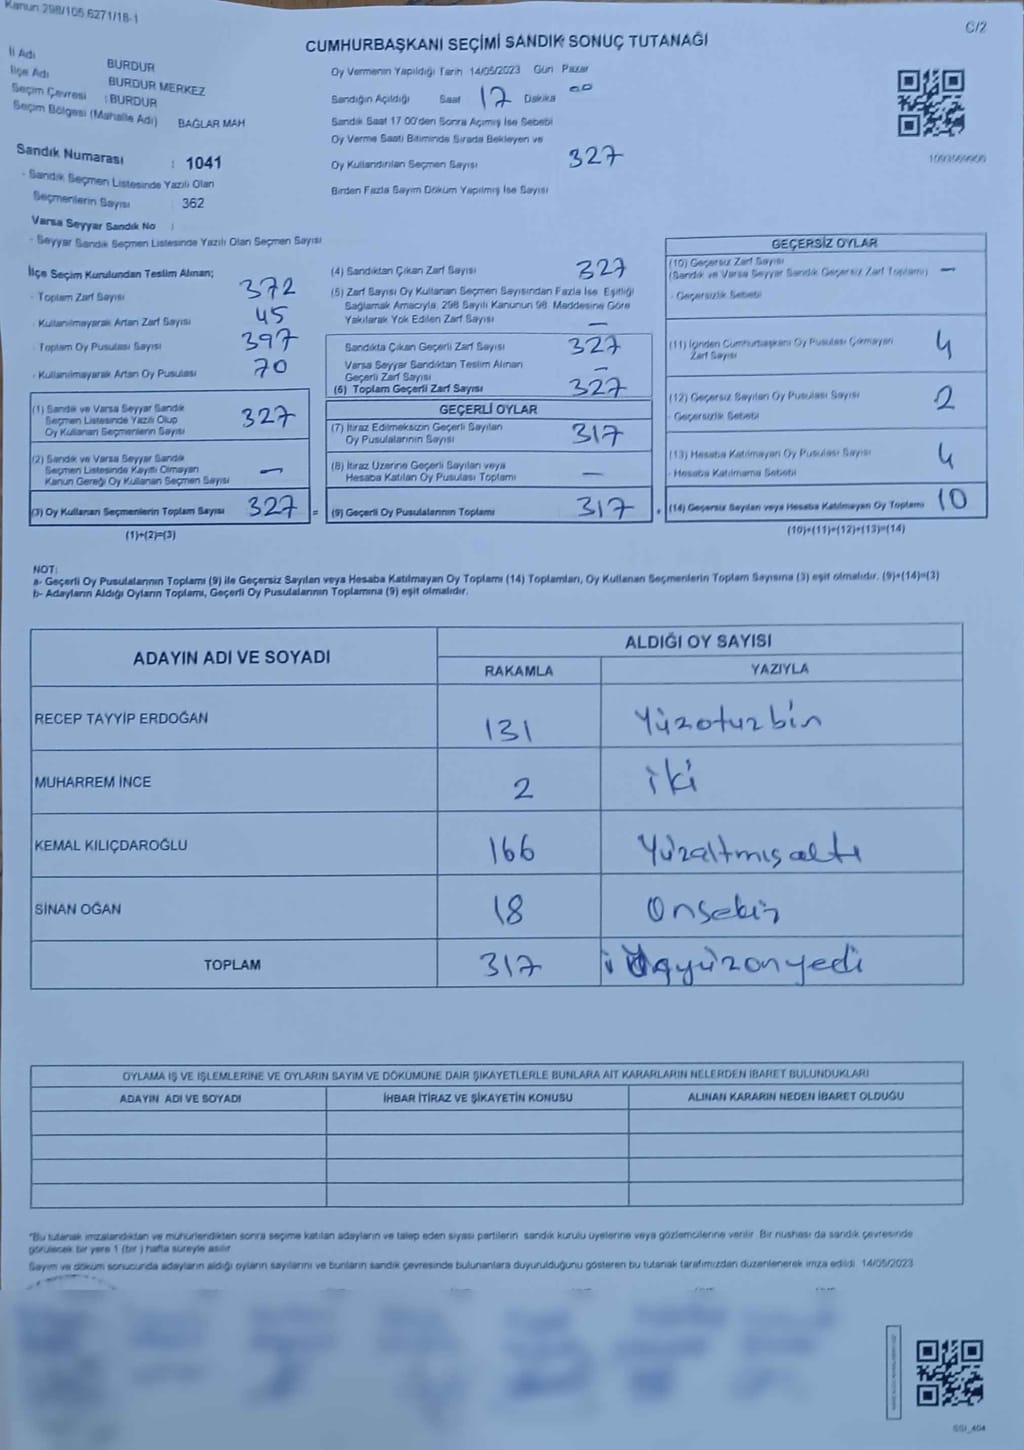 Kanun 298/105.6271/18-1
C/2
CUMHURBAŞKANI SEÇİMİ SANDIK SONUÇ TUTANAĞI
İl Adı BURDUR
İlçe Adı BURDUR MERKEZ
Seçim Çevresi : BURDUR
Seçim Bölgesi (Mahalle Adı) BAĞLAR MAH
Sandık Numarası : 1041
- Sandık Seçmen Listesinde Yazılı Olan
Seçmenlerin Sayısı 362
Varsa Seyyar Sandık No :
- Seyyar Sandık Seçmen Listesinde Yazılı Olan Seçmen Sayısı
Oy Vermenin Yapıldığı Tarih 14/05/2023 Gün Pazar
Sandığın Açıldığı Saat 17 Dakika 00
Sandık Saat 17.00'den Sonra Açımış İse Sebebi
Oy Verme Saati Bitiminde Sırada Bekleyen ve
Oy Kullandırılan Seçmen Sayısı 327
Birden Fazla Sayım Döküm Yapılmış İse Sayısı
İlçe Seçim Kurulundan Teslim Alınan;
- Toplam Zarf Sayısı 372
- Kullanılmayarak Artan Zarf Sayısı 45
- Toplam Oy Pusulası Sayısı 397
- Kullanılmayarak Artan Oy Pusulası 70
(1) Sandık ve Varsa Seyyar Sandık
Seçmen Listesinde Yazılı Olup
Oy Kullanan Seçmenlerin Sayısı 327
(2) Sandık ve Varsa Seyyar Sandık
Seçmen Listesinde Kayıtlı Olmayan
Kanun Gereği Oy Kullanan Seçmen Sayısı —
(3) Oy Kullanan Seçmenlerin Toplam Sayısı 327 =
(1)+(2)=(3)
(4) Sandıktan Çıkan Zarf Sayısı 327
(5) Zarf Sayısı Oy Kullanan Seçmen Sayısından Fazla İse, Eşitliği
Sağlamak Amacıyla, 298 Sayılı Kanunun 98. Maddesine Göre
Yakılarak Yok Edilen Zarf Sayısı —
Sandıkta Çıkan Geçerli Zarf Sayısı 327
Varsa Seyyar Sandıktan Teslim Alınan
Geçerli Zarf Sayısı —
(6) Toplam Geçerli Zarf Sayısı 327
GEÇERLİ OYLAR
(7) İtiraz Edilmeksizin Geçerli Sayılan
Oy Pusulalarının Sayısı 317
(8) İtiraz Üzerine Geçerli Sayılan veya
Hesaba Katılan Oy Pusulası Toplamı —
(9) Geçerli Oy Pusulalarının Toplamı 317 +
GEÇERSİZ OYLAR
(10) Geçersiz Zarf Sayısı
(Sandık ve Varsa Seyyar Sandık Geçersiz Zarf Toplamı) —
- Geçersizlik Sebebi
(11) İçinden Cumhurbaşkanı Oy Pusulası Çıkmayan
Zarf Sayısı 4
(12) Geçersiz Sayılan Oy Pusulası Sayısı 2
- Geçersizlik Sebebi
(13) Hesaba Katılmayan Oy Pusulası Sayısı 4
- Hesaba Katılmama Sebebi
(14) Geçersiz Sayılan veya Hesaba Katılmayan Oy Toplamı 10
(10)+(11)+(12)+(13)=(14)
NOT:
a- Geçerli Oy Pusulalarının Toplamı (9) ile Geçersiz Sayılan veya Hesaba Katılmayan Oy Toplamı (14) Toplamları, Oy Kullanan Seçmenlerin Toplam Sayısına (3) eşit olmalıdır. (9)+(14)=(3)
b- Adayların Aldığı Oyların Toplamı, Geçerli Oy Pusulalarının Toplamına (9) eşit olmalıdır.
ADAYIN ADI VE SOYADI
ALDIĞI OY SAYISI
RAKAMLA YAZIYLA
RECEP TAYYİP ERDOĞAN 131 Yüzotuzbin
MUHARREM İNCE 2 iki
KEMAL KILIÇDAROĞLU 166 Yüzaltmışaltı
SİNAN OĞAN 18 Onsekiz
TOPLAM 317 Üçyüzonyedi
OYLAMA İŞ VE İŞLEMLERİNE VE OYLARIN SAYIM VE DÖKÜMÜNE DAİR ŞİKAYETLERLE BUNLARA AİT KARARLARIN NELERDEN İBARET BULUNDUKLARI
ADAYIN ADI VE SOYADI İHBAR İTİRAZ VE ŞİKAYETİN KONUSU ALINAN KARARIN NEDEN İBARET OLDUĞU
*Bu tutanak imzalandıktan ve mühürlendikten sonra seçime katılan adayların ve talep eden siyasi partilerin sandık kurulu üyelerine veya gözlemcilerine verilir. Bir nüshası da sandık çevresinde
görülecek bir yere 1 (bir) hafta süreyle asılır.
Sayım ve döküm sonucunda adayların aldığı oyların sayılarını ve bunların sandık çevresinde bulunanlara duyurulduğunu gösteren bu tutanak tarafımızdan düzenlenerek imza edildi. 14/05/2023
SSI_404